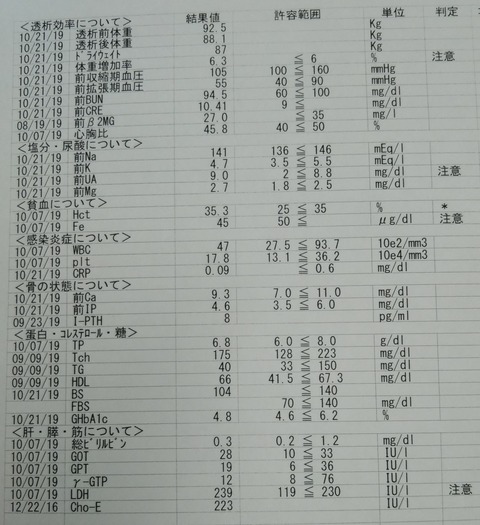 結果値 許容範囲 単位 判定
＜透析効率について＞
10/21/19 透析前体重 92.5 Kg
10/21/19 透析後体重 88.1 Kg
10/21/19 ﾄﾞﾗｲｳｪｲﾄ 87 Kg
10/21/19 体重増加率 6.3 ≦ 6 % 注意
10/21/19 前収縮期血圧 105 100 ≦ 160 mmHg
10/21/19 前拡張期血圧 55 40 ≦ 90 mmHg
10/21/19 前BUN 94.5 60 ≦ 100 mg/dl
10/21/19 前CRE 10.41 9 ≦ mg/dl
08/19/19 前β2MG 27.0 ≦ 35 mg/l
10/07/19 心胸比 45.8 40 ≦ 50 %
＜塩分・尿酸について＞
10/21/19 前Na 141 136 ≦ 146 mEq/l
10/21/19 前K 4.7 3.5 ≦ 5.5 mEq/l
10/21/19 前UA 9.0 2 ≦ 8.8 mg/dl 注意
10/21/19 前Mg 2.7 1.8 ≦ 2.5 mg/dl
＜貧血について＞
10/07/19 Hct 35.3 25 ≦ 35 % *
10/07/19 Fe 45 50 ≦ μg/dl 注意
＜感染炎症について＞
10/07/19 WBC 47 27.5 ≦ 93.7 10e2/mm3
10/07/19 plt 17.8 13.1 ≦ 36.2 10e4/mm3
10/21/19 CRP 0.09 ≦ 0.6 mg/dl
＜骨の状態について＞
10/21/19 前Ca 9.3 7.0 ≦ 11.0 mg/dl
10/21/19 前IP 4.6 3.5 ≦ 6.0 mg/dl
09/23/19 I-PTH 8 pg/ml
＜蛋白・ｺﾚｽﾃﾛｰﾙ・糖＞
10/07/19 TP 6.8 6.0 ≦ 8.0 g/dl
09/09/19 Tch 175 128 ≦ 223 mg/dl
09/09/19 TG 40 33 ≦ 150 mg/dl
09/09/19 HDL 66 41.5 ≦ 67.3 mg/dl
10/21/19 BS 104 ≦ 140
FBS 70 ≦ 140 mg/dl
10/21/19 GHbA1c 4.8 4.6 ≦ 6.2 %
＜肝・膵・筋について＞
10/07/19 総ﾋﾞﾘﾙﾋﾞﾝ 0.3 0.2 ≦ 1.2 mg/dl
10/07/19 GOT 28 10 ≦ 33 IU/l
10/07/19 GPT 19 6 ≦ 36 IU/l
10/07/19 γ-GTP 12 8 ≦ 76 IU/l
10/07/19 LDH 239 119 ≦ 230 IU/l 注意
12/22/16 Cho-E 223 IU/l